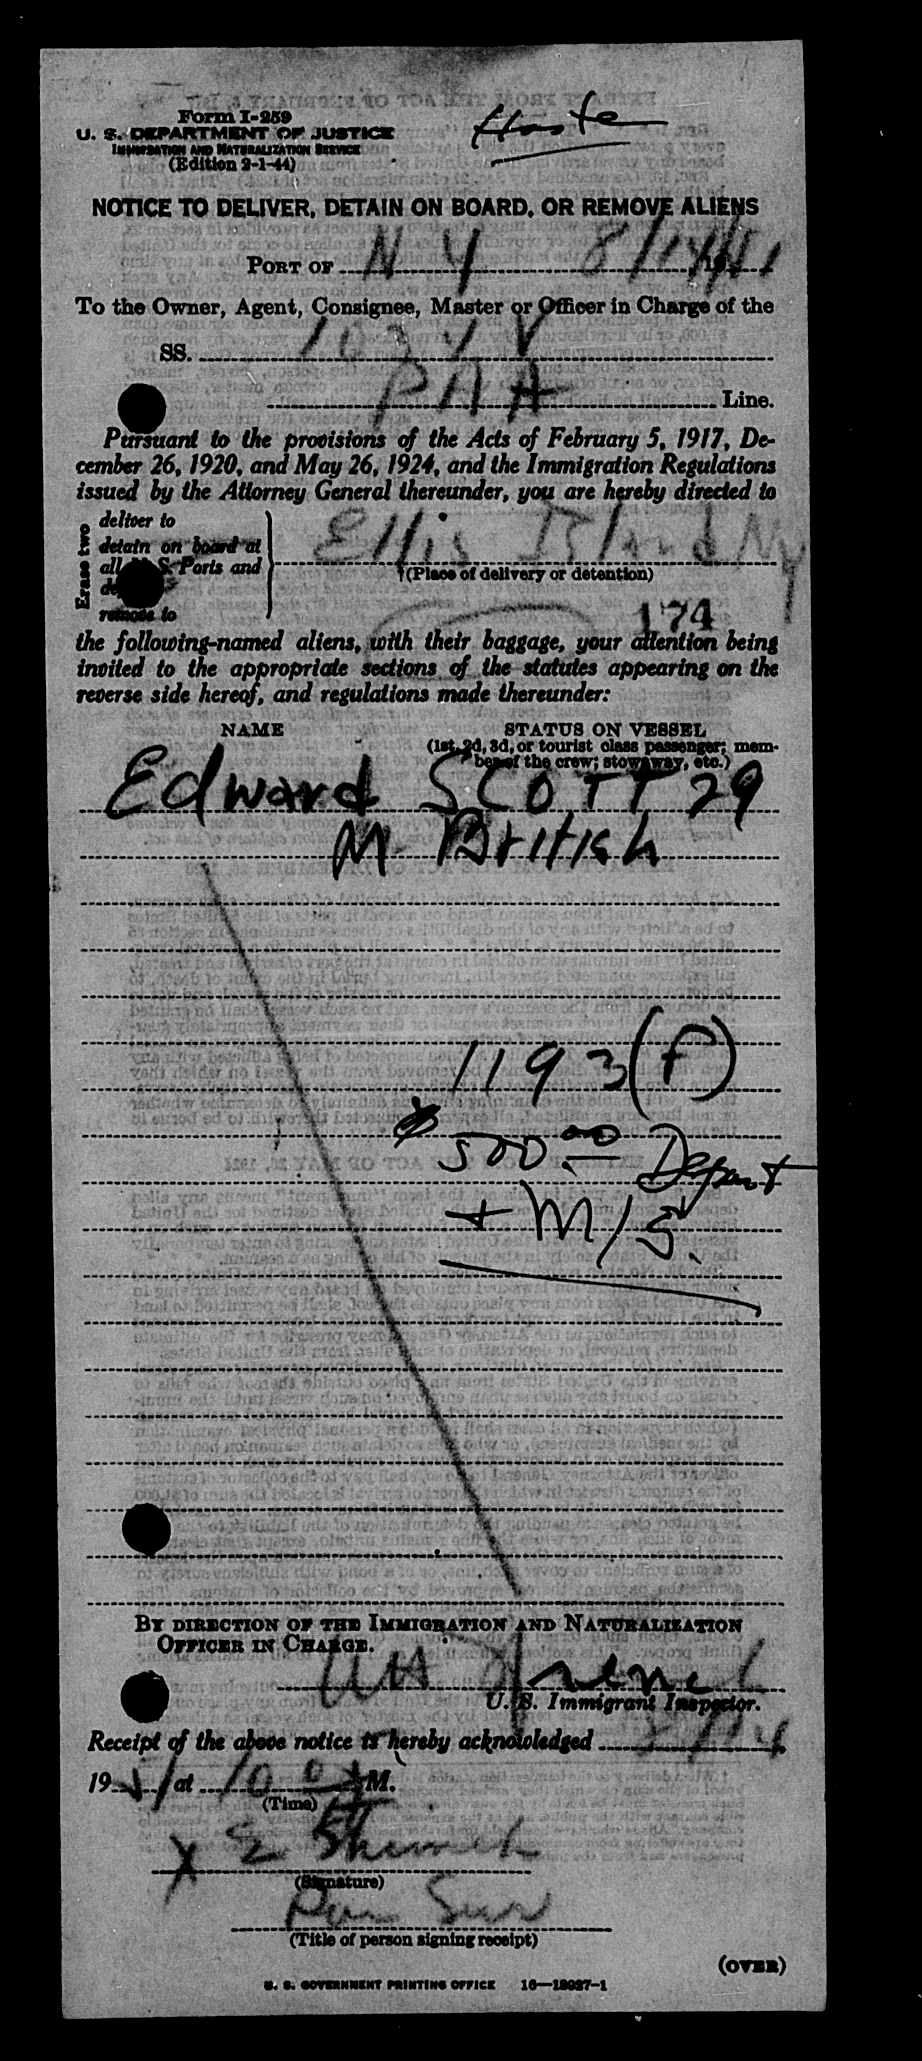 Form I-259
U. S. DEPARTMENT OF JUSTICE
IMMIGRATION AND NATURALIZATION SERVICE
(Edition 2-1-44)
Haste
NOTICE TO DELIVER, DETAIN ON BOARD, OR REMOVE ALIENS
PORT OF N Y 8/14/
To the Owner, Agent, Consignee, Master or Officer in Charge of the
SS.
PAA Line.
Pursuant to the provisions of the Acts of February 5, 1917, De-
cember 26, 1920, and May 26, 1924, and the Immigration Regulations
issued by the Attorney General thereunder, you are hereby directed to
Erase two
deliver to
detain on board at
all U. S. Ports and
remove to
Ellis Island NY
†(Place of delivery or detention)
174
the following-named aliens, with their baggage, your attention being
invited to the appropriate sections of the statutes appearing on the
reverse side hereof, and regulations made thereunder:
NAME STATUS ON VESSEL
(1st, 2d, 3d, or tourist class passenger; mem-
ber of the crew; stowaway, etc.)
Edward SCOTT 29
M British
1193(P)
$500.00 Depart
+ M/S.
BY DIRECTION OF THE IMMIGRATION AND NATURALIZATION
OFFICER IN CHARGE.
U. S. Immigrant Inspector.
Receipt of the above notice is hereby acknowledged 8/14
1951 at 10 M.
(Time)
X E
(Signature)
(Title of person signing receipt)
(OVER)
U. S. GOVERNMENT PRINTING OFFICE 16—18027-1